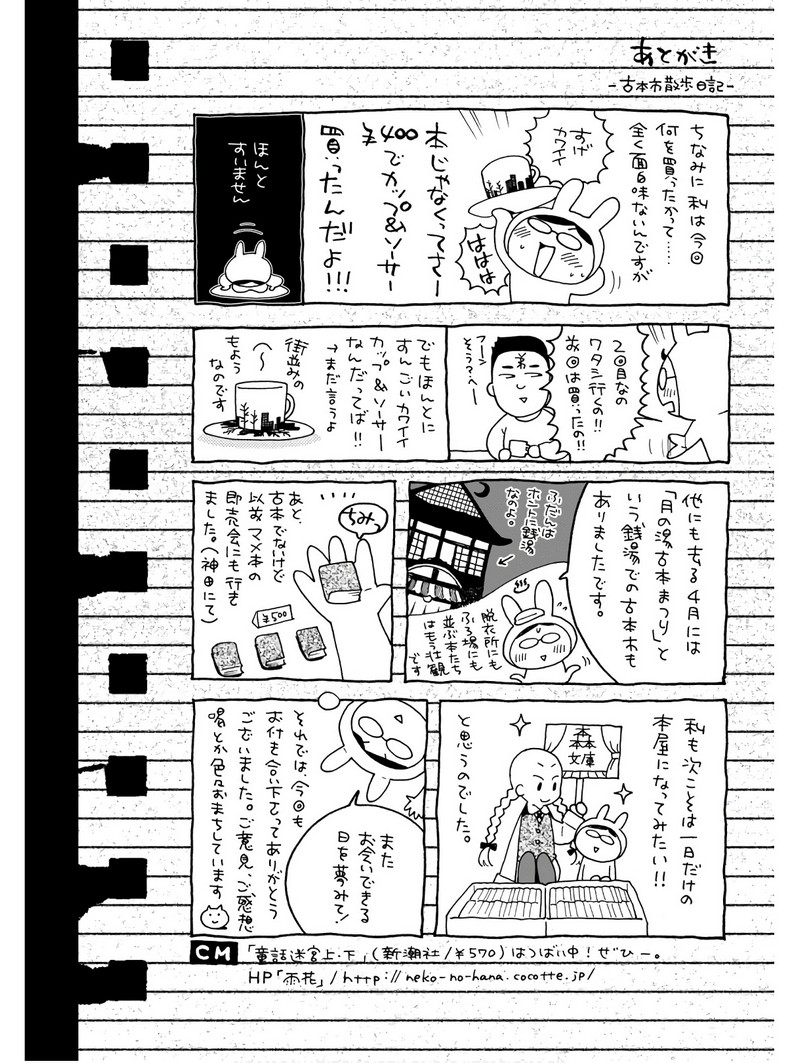 あとがき
-古本市散歩日記-
ちなみに私は今回
何を買ったかって……
全く面白味ないんですが
すげ
カワイイ
ははは
本じゃなくってさー
¥400でカップ&ソーサー
買ったんだよ!!!
ほんと
すいません
2回目なの
ワタシ行くの!!
前回は買ったの!!
弟
フーン
そうですかー
でもほんとに
すんごいカワイイ
カップ&ソーサー
なんだってば!!
→まだ言うよ
街並みの
〜
もよう
なのです
他にも去る4月には
「月の湯古本まつり」と
いう銭湯での古本市も
ありましたです。
ふだんは
ホントに銭湯
なのよ。
脱衣所にも
ふろ場にも
並ぶ本たち
はもう壮観
です
あと、
古本でないけど
以前マメ本の
即売会にも行き
ました。(神田にて)
ちみっ
¥500
私も次こそは一日だけの
本屋になってみたい!!
森
文庫
と思うのでした。
また
お会いできる
日を夢みて!
それでは、今回も
お付き合い下さってありがとう
ございました。ご意見、ご感想
喝とか色々おまちしています
CM「童話迷宮上・下」(新潮社/¥570)はつばい中!ぜひー。
HP「雨花」/http://neko-no-hana.cocotte.jp/